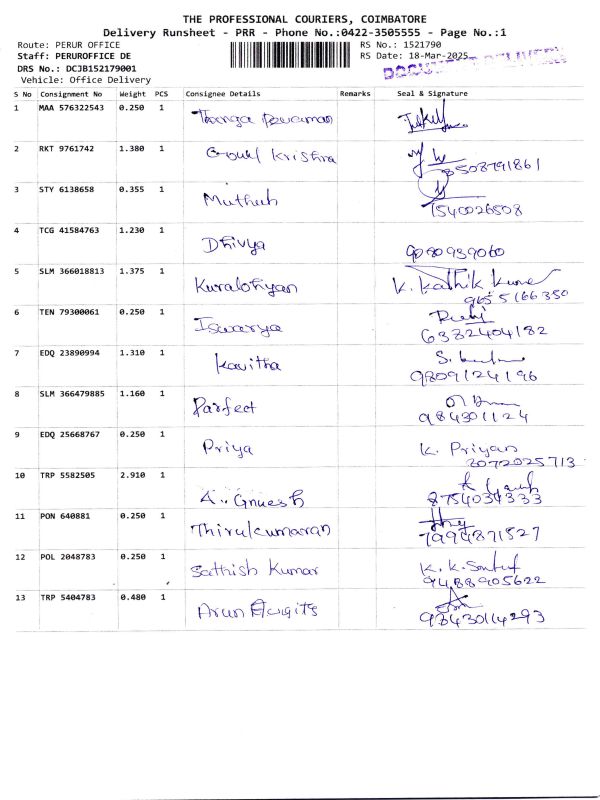 THE PROFESSIONAL COURIERS, COIMBATORE
Delivery Runsheet - PRR - Phone No.:0422-3505555 - Page No.:1
Route: PERUR OFFICE RS No.: 1521790
Staff: PERUROFFICE DE RS Date: 18-Mar-2025
DRS No.: DCJB152179001
Vehicle: Office Delivery
S No Consignment No Weight PCS Consignee Details Remarks Seal & Signature
1 MAA 576322543 0.250 1
2 RKT 9761742 1.380 1 Krishna
8508791861
3 STY 6138658 0.355 1 Muthuh
7540026508
4 TCG 41584763 1.230 1 Dhivya 9080939060
5 SLM 366018813 1.375 1 K. Kathik
9655166350
6 TEN 79300061 0.250 1 Iswarya
6382404182
7 EDQ 23890994 1.310 1 Kavitha S.
9809124196
8 SLM 366479885 1.160 1 Parfect
984301124
9 EDQ 25668767 0.250 1 Priya K. Priyan
2072025713
10 TRP 5582505 2.910 1 A. Gnuesh
8754034333
11 PON 640881 0.250 1 Thirukumaran
7994871527
12 POL 2048783 0.250 1 Sathish Kumar K. K.
9488905622
13 TRP 5404783 0.480 1 Arun